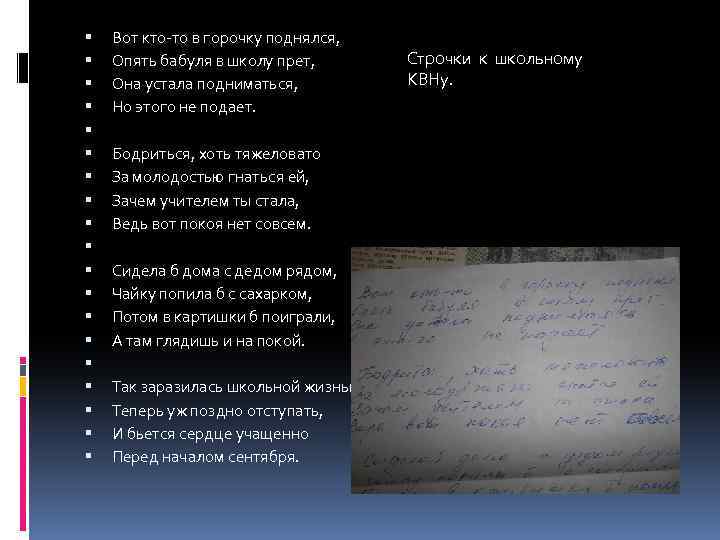 Вот кто-то в горочку поднялся,
Опять бабуля в школу прет,
Она устала подниматься,
Но этого не подает.
Бодриться, хоть тяжеловато
За молодостью гнаться ей,
Зачем учителем ты стала,
Ведь вот покоя нет совсем.
Сидела б дома с дедом рядом,
Чайку попила б с сахарком,
Потом в картишки б поиграли,
А там глядишь и на покой.
Так заразилась школьной жизнь
Теперь уж поздно отступать,
И бьется сердце учащенно
Перед началом сентября.
Строчки к школьному
КВНу.
Вот кто-то в горочку
бабуля в школу прет
устала
не
хоть
гнаться ей
учителем ты стала
вот покоя нет
дома с дедом